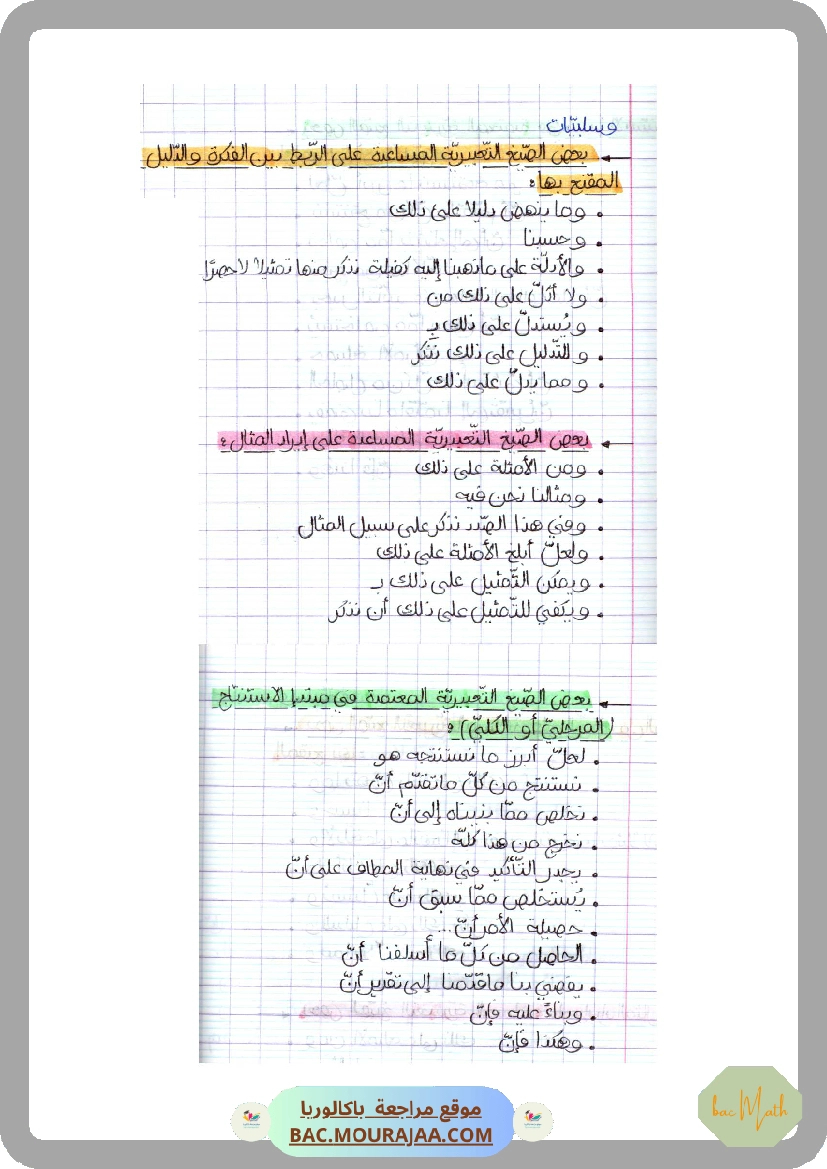 وسلبيّات
بعض الصّيغ التّعبيريّة المساعدة على الرّبط بين الفكرة والدّليل
المقنع بها:
• وما ينهض دليلا على ذلك
• وحسبنا
• والأدلّة على ما ذهبنا إليه كفيلة نذكر منها تمثيلا لا حصرًا
• ولا أدلّ على ذلك من
• ويُستدلّ على ذلك بِـ
• وللتّدليل على ذلك نذكر
• ومما يدلّ على ذلك
بعض الصّيغ التّعبيريّة المساعدة على إيراد المثال:
• ومن الأمثلة على ذلك
• ومثالنا نحن فيه
• وفي هذا الصّدد نذكر على سبيل المثال
• ولعلّ أبلغ الأمثلة على ذلك
• ويمكن التّمثيل على ذلك بـ
• ويكفي للتّمثيل على ذلك أن نذكر
بعض الصّيغ التّعبيريّة المعتمدة في مبتدإ الاستنتاج
(المرحليّ أو الكليّ):
• لعلّ أبرز ما نستنتجه هو
• نستنتج من كلّ ما تقدّم أنّ
• نخلص ممّا بيّناه إلى أنّ
• نخرج من هذا كلّه
• يجدر التّأكيد في نهاية المطاف على أنّ
• يُستخلص ممّا سبق أنّ
• حصيلة الأمر أنّ...
• الحاصل من كلّ ما أسلفنا أنّ
• يفضي بنا ما قدّمنا إلى تقرير أنّ
• وبناءً عليه فإنّ
• وهكذا فإنّ
موقع مراجعة باكالوريا
BAC.MOURAJAA.COM
bac Math